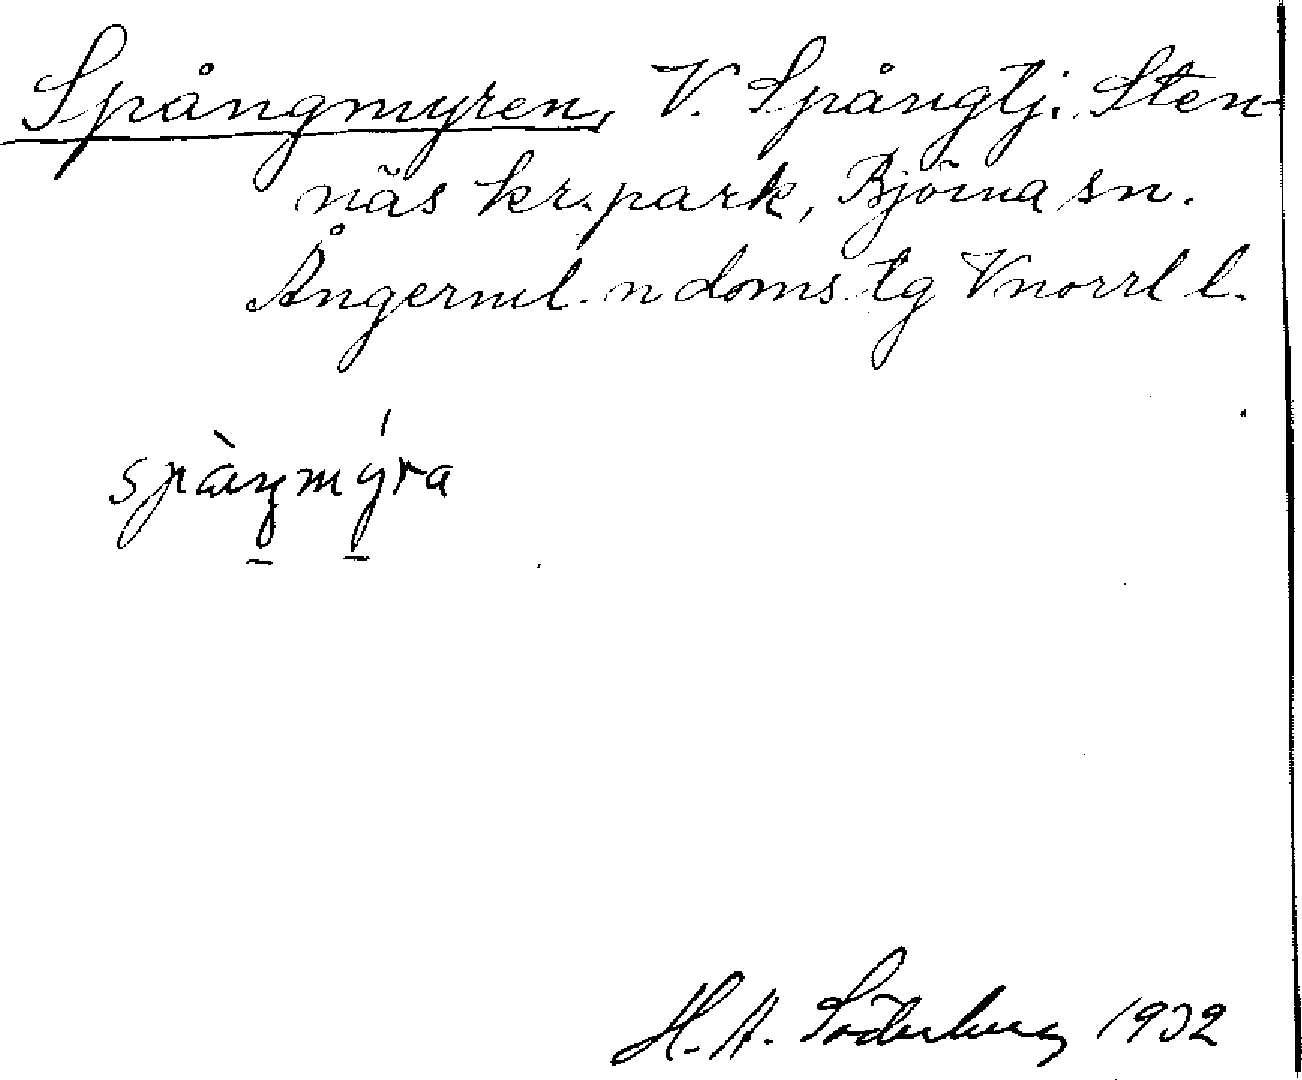 Spångmyren, V. Spångtj. Sten-
näs kr.park, Björna sn.
Ångerml. n doms tg Vnorrl l.
spàŋmýra
H. A. Söderberg 1932